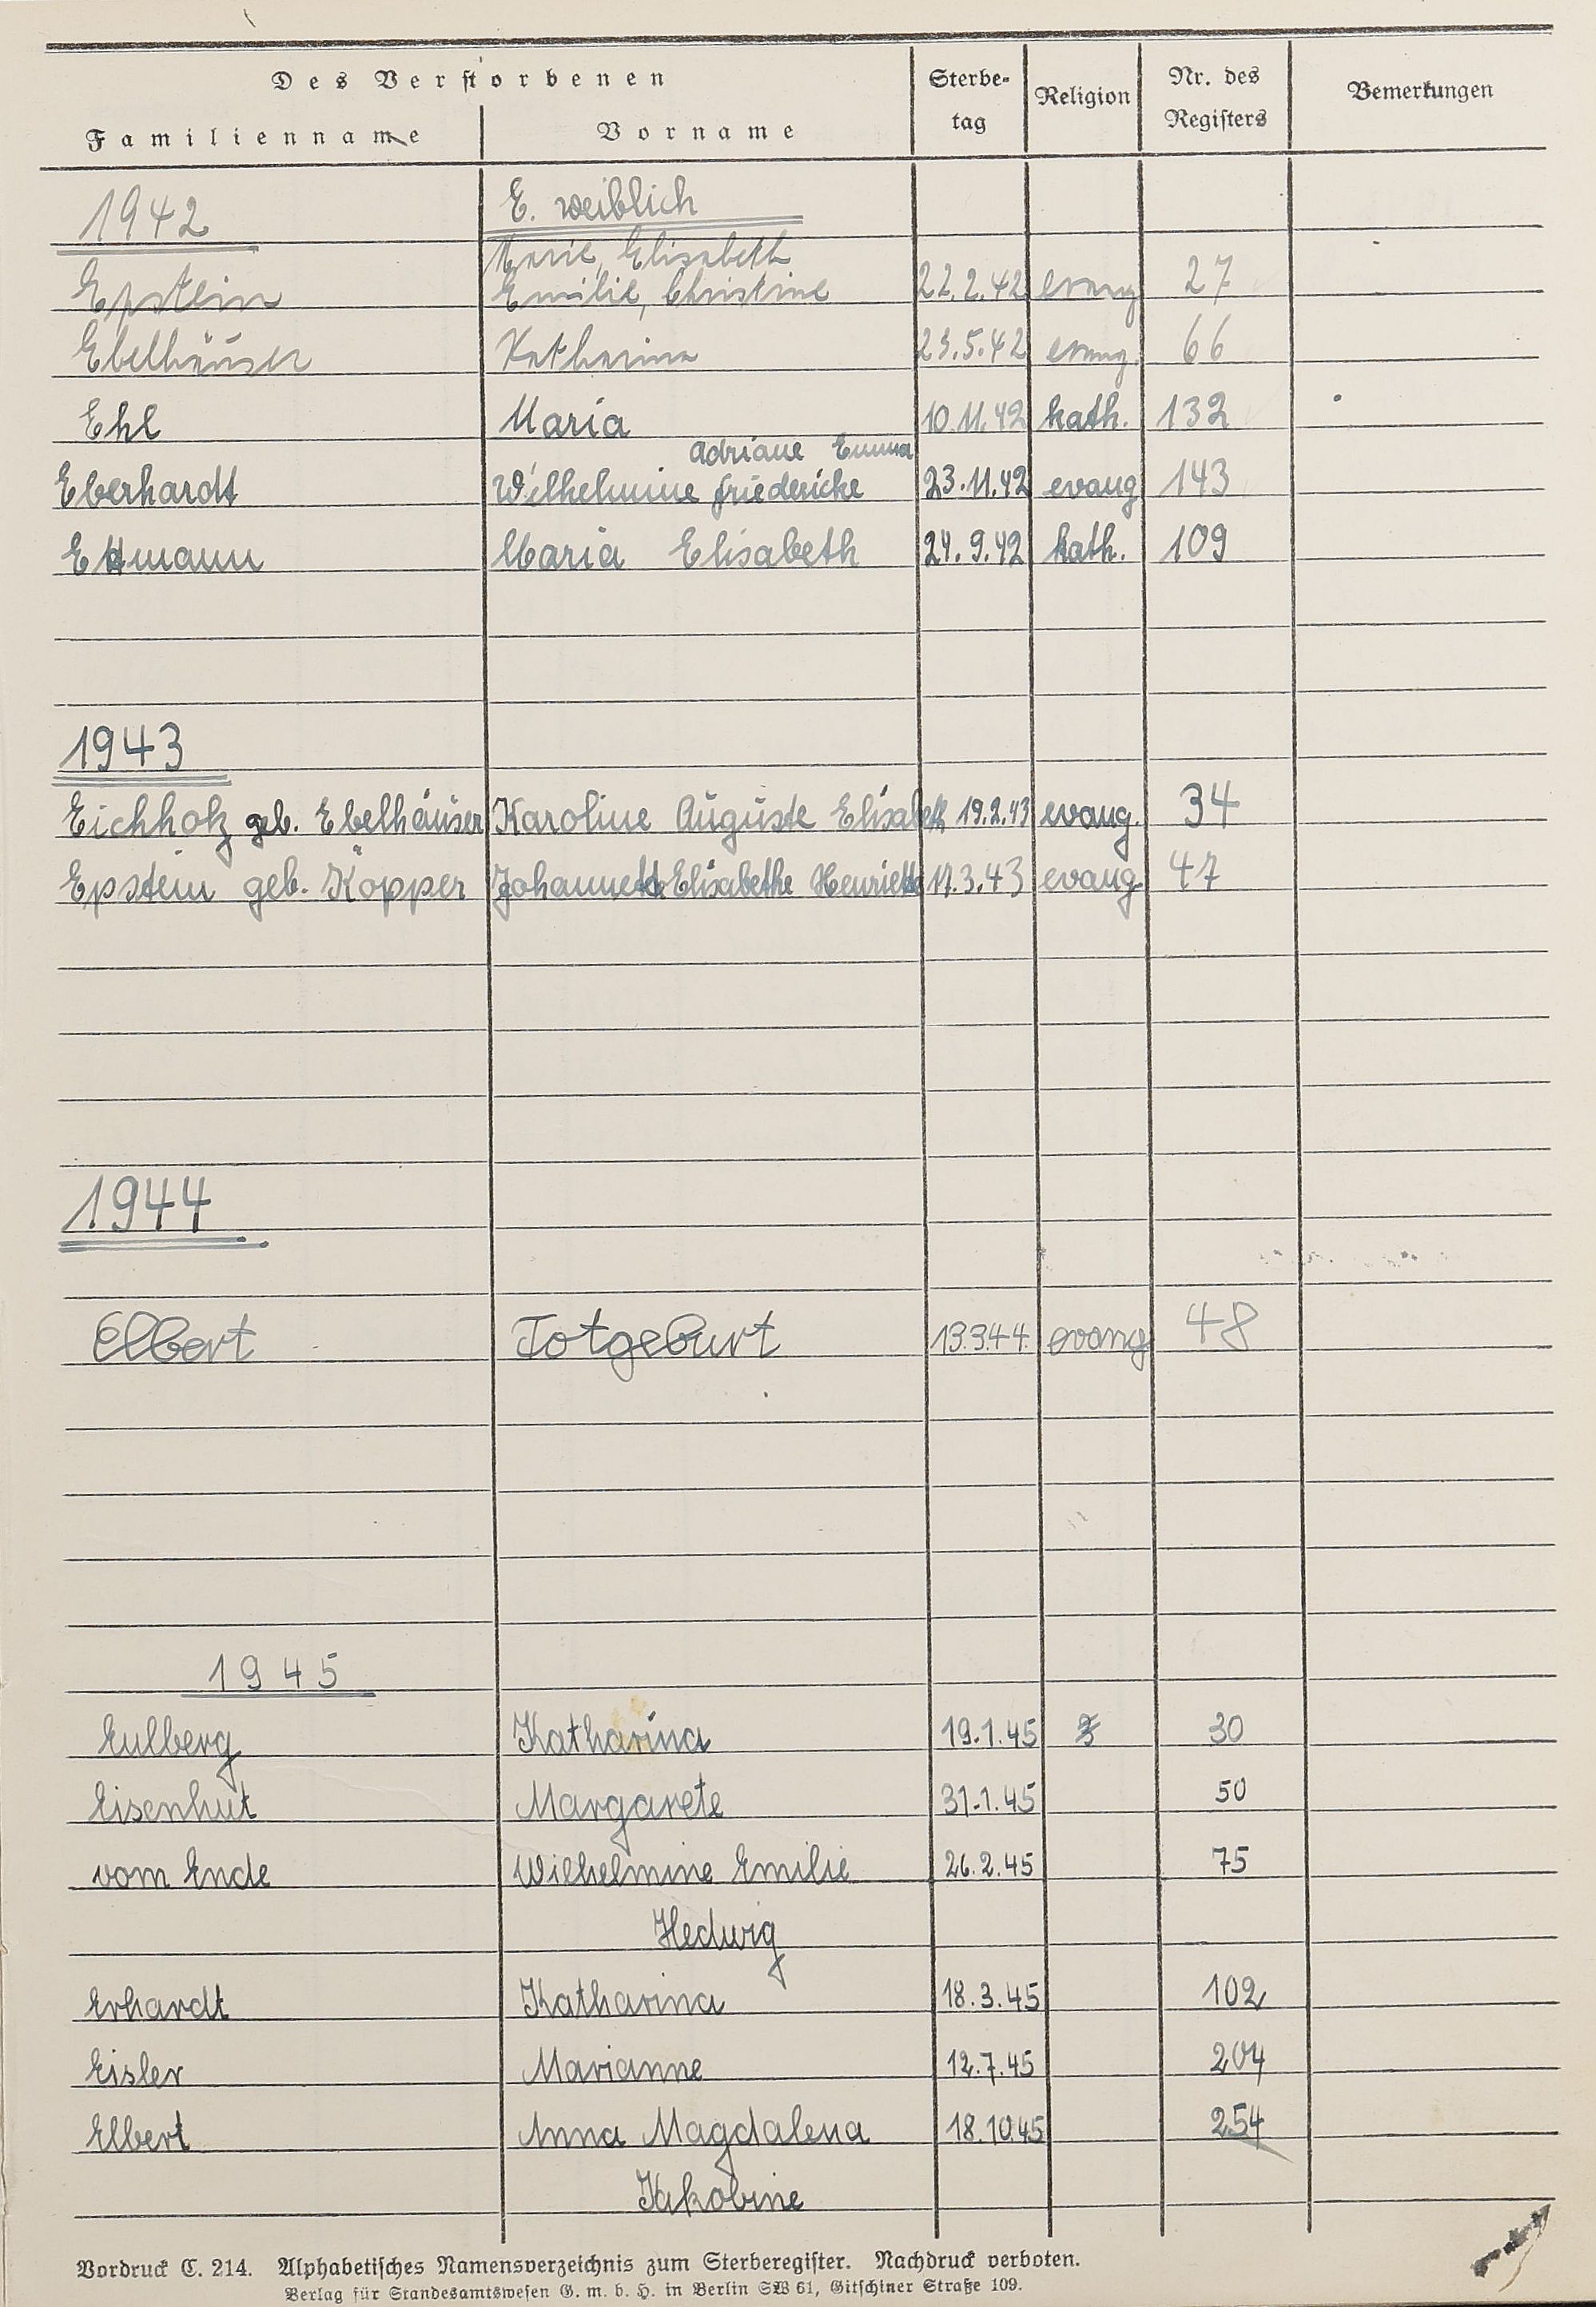 Des Verstorbenen Sterbe- Religion Nr. des Bemerkungen
Familienname Vorname tag Registers
1942 E. weiblich
Marie, Elisabeth
Epstein Emilie, Christine 22.2.42 evang 27
Ebelhäuser Katharina 23.5.42 evang. 66
Ehl Maria 10.11.42 kath. 132
Adriane Emma
Eberhardt Wilhelmine Friedericke 23.11.42 evang 143
Ettmann Maria Elisabeth 24.9.42 kath. 109
1943
Eichholz geb. Ebelhäuser Karoline Auguste Elisabeth 19.2.43 evang. 34
Epstein geb. Kopper Johannette Elisabethe Henriette 17.3.43 evang 47
1944
Elbert Totgeburt 13.3.44. evang 48
1945
Eulberg Katharina 19.1.45 30
Eisenhut Margarete 31.1.45 50
vom Ende Wilhelmine Emilie 26.2.45 75
Hedwig
Erhardt Katharina 18.3.45 102
Eisler Marianne 12.7.45 204
Elbert Anna Magdalena 18.10.45 254
Jakobine
Vordruck C. 214. Alphabetisches Namensverzeichnis zum Sterberegister. Nachdruck verboten.
Verlag für Standesamtswesen G. m. b. H. in Berlin SW 61, Gitschiner Straße 109.